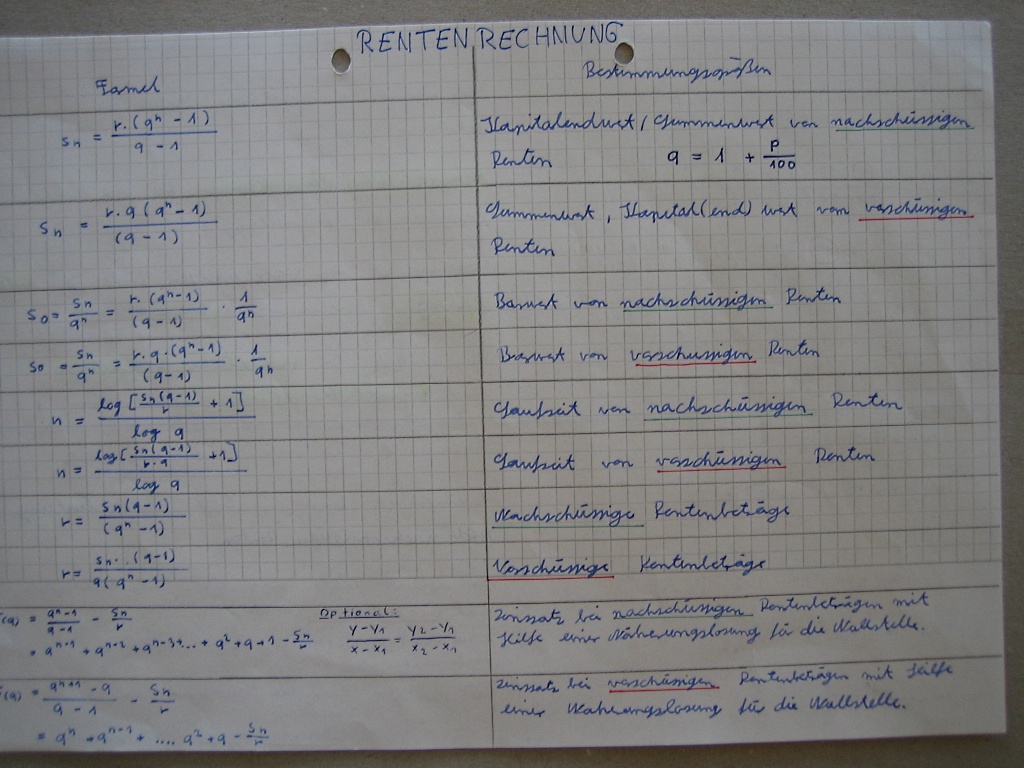 RENTENRECHNUNG
Formel
Bestimmungsgrößen
Sn = r·(qⁿ - 1) / q - 1
Kapitalendwert / Summenwert von nachschüssigen
Renten q = 1 + P/100
Sn = r·q (qⁿ - 1) / (q - 1)
Summenwert, Kapital(end)wert von vorschüssigen
Renten
S0 = Sn/qⁿ = r·(qⁿ-1) / (q-1) · 1/qⁿ
Barwert von nachschüssigen Renten
S0 = Sn/qⁿ = r·q·(qⁿ-1) / (q-1) · 1/qⁿ
Barwert von vorschussigen Renten
n = log [Sn(q-1)/r + 1] / log q
Laufzeit von nachschüssigen Renten
n = log [Sn(q-1)/r·q + 1] / log q
Laufzeit von vorschüssigen Renten
r = Sn(q-1) / (qⁿ-1)
Nachschüssige Rentenbeträge
r = Sn·(q-1) / q(qⁿ-1)
Vorschüssige Rentenbeträge
(q) = qⁿ-1 / q-1 - Sn/r
Optional:
= qⁿ⁻¹ + qⁿ⁻² + qⁿ⁻³+... + q² + q + 1 - Sn/r
y-y₁ / x-x₁ = y₂-y₁ / x₂-x₁
Zinssatz bei nachschüssigen Rentenbeträgen mit
Hilfe einer Näherungslosung für die Nullstelle.
(q) = qⁿ⁺¹ - q / q - 1 - Sn/r
= qⁿ + qⁿ⁻¹ + .... q² + q - Sn/r
Zinssatz bei vorschüssigen Rentenbeträgen mit Hilfe
einer Naherungslosung für die Nullstelle.